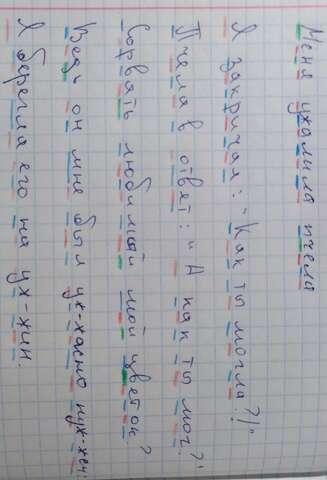 Меня ужалила пчела
Я закричал: "Как ты могла?!"
Пчела в ответ: "А как ты мог?
Сорвать любимый мой цветок?
Ведь он мне был уж-жасно нуж-жен:
Я берегла его на уж-жин.